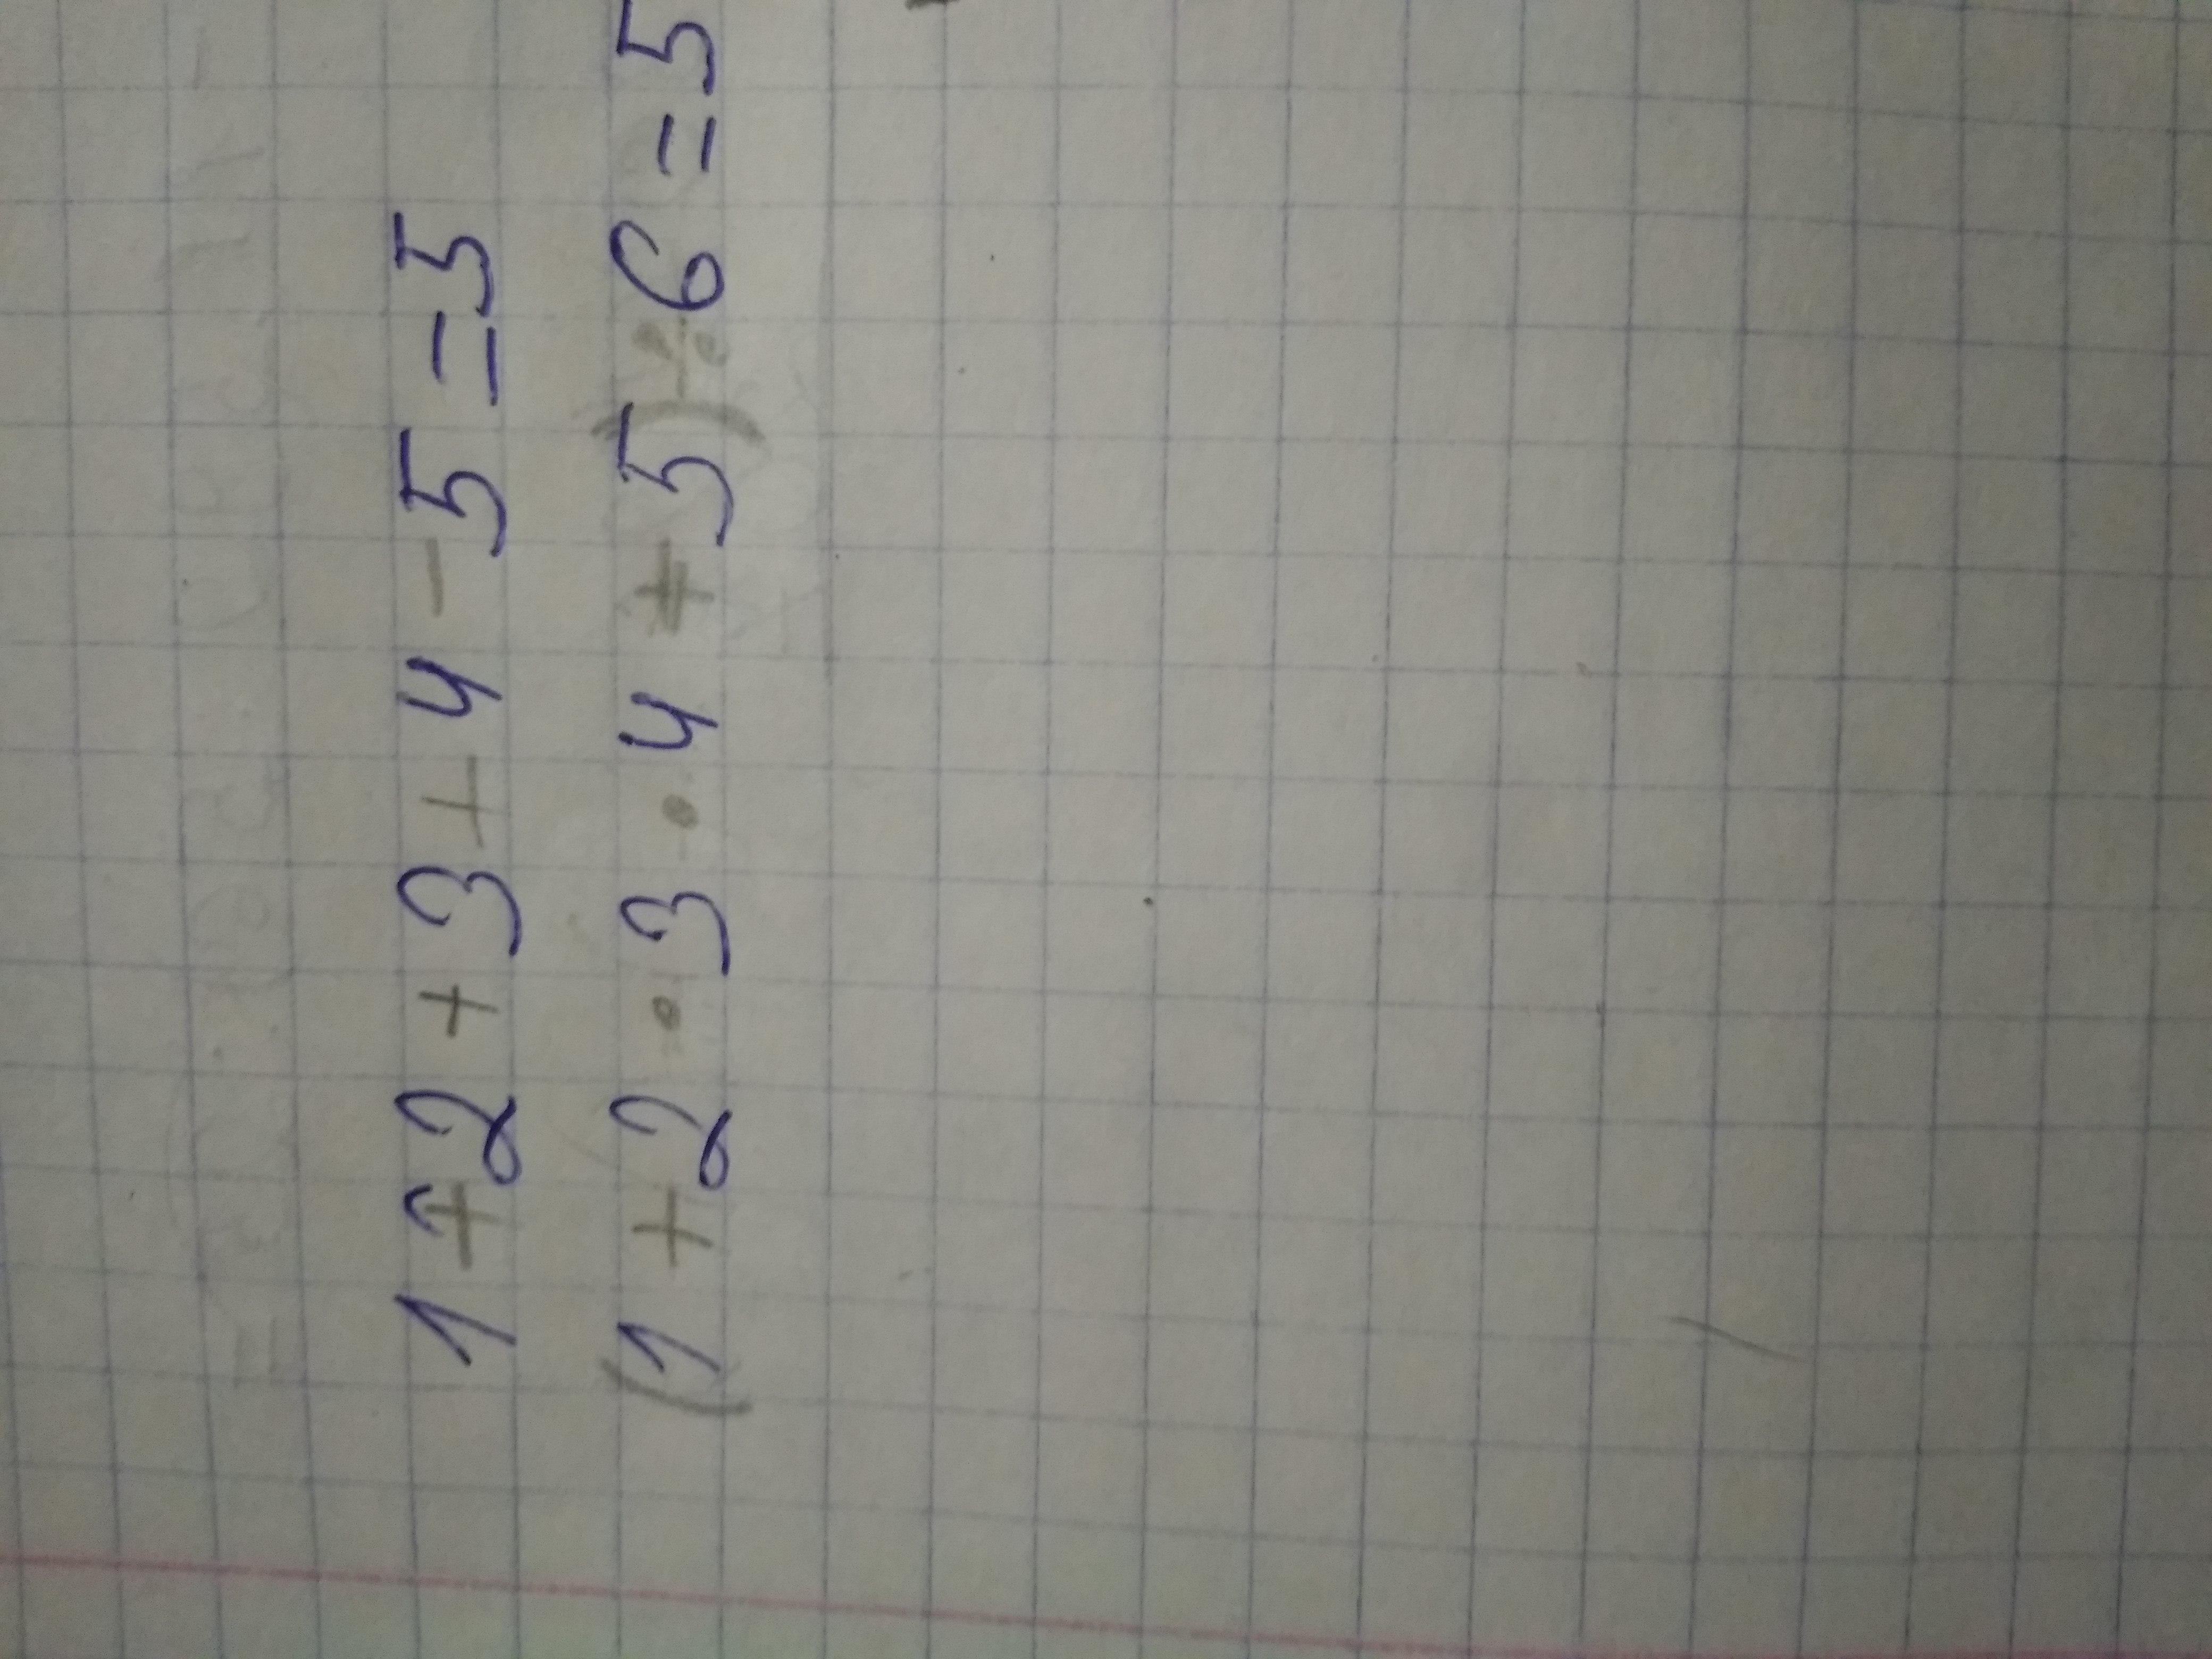 1 + 2 + 3 + 4 - 5 = 5
(1 + 2 · 3 · 4 + 5) ÷ 6 = 5